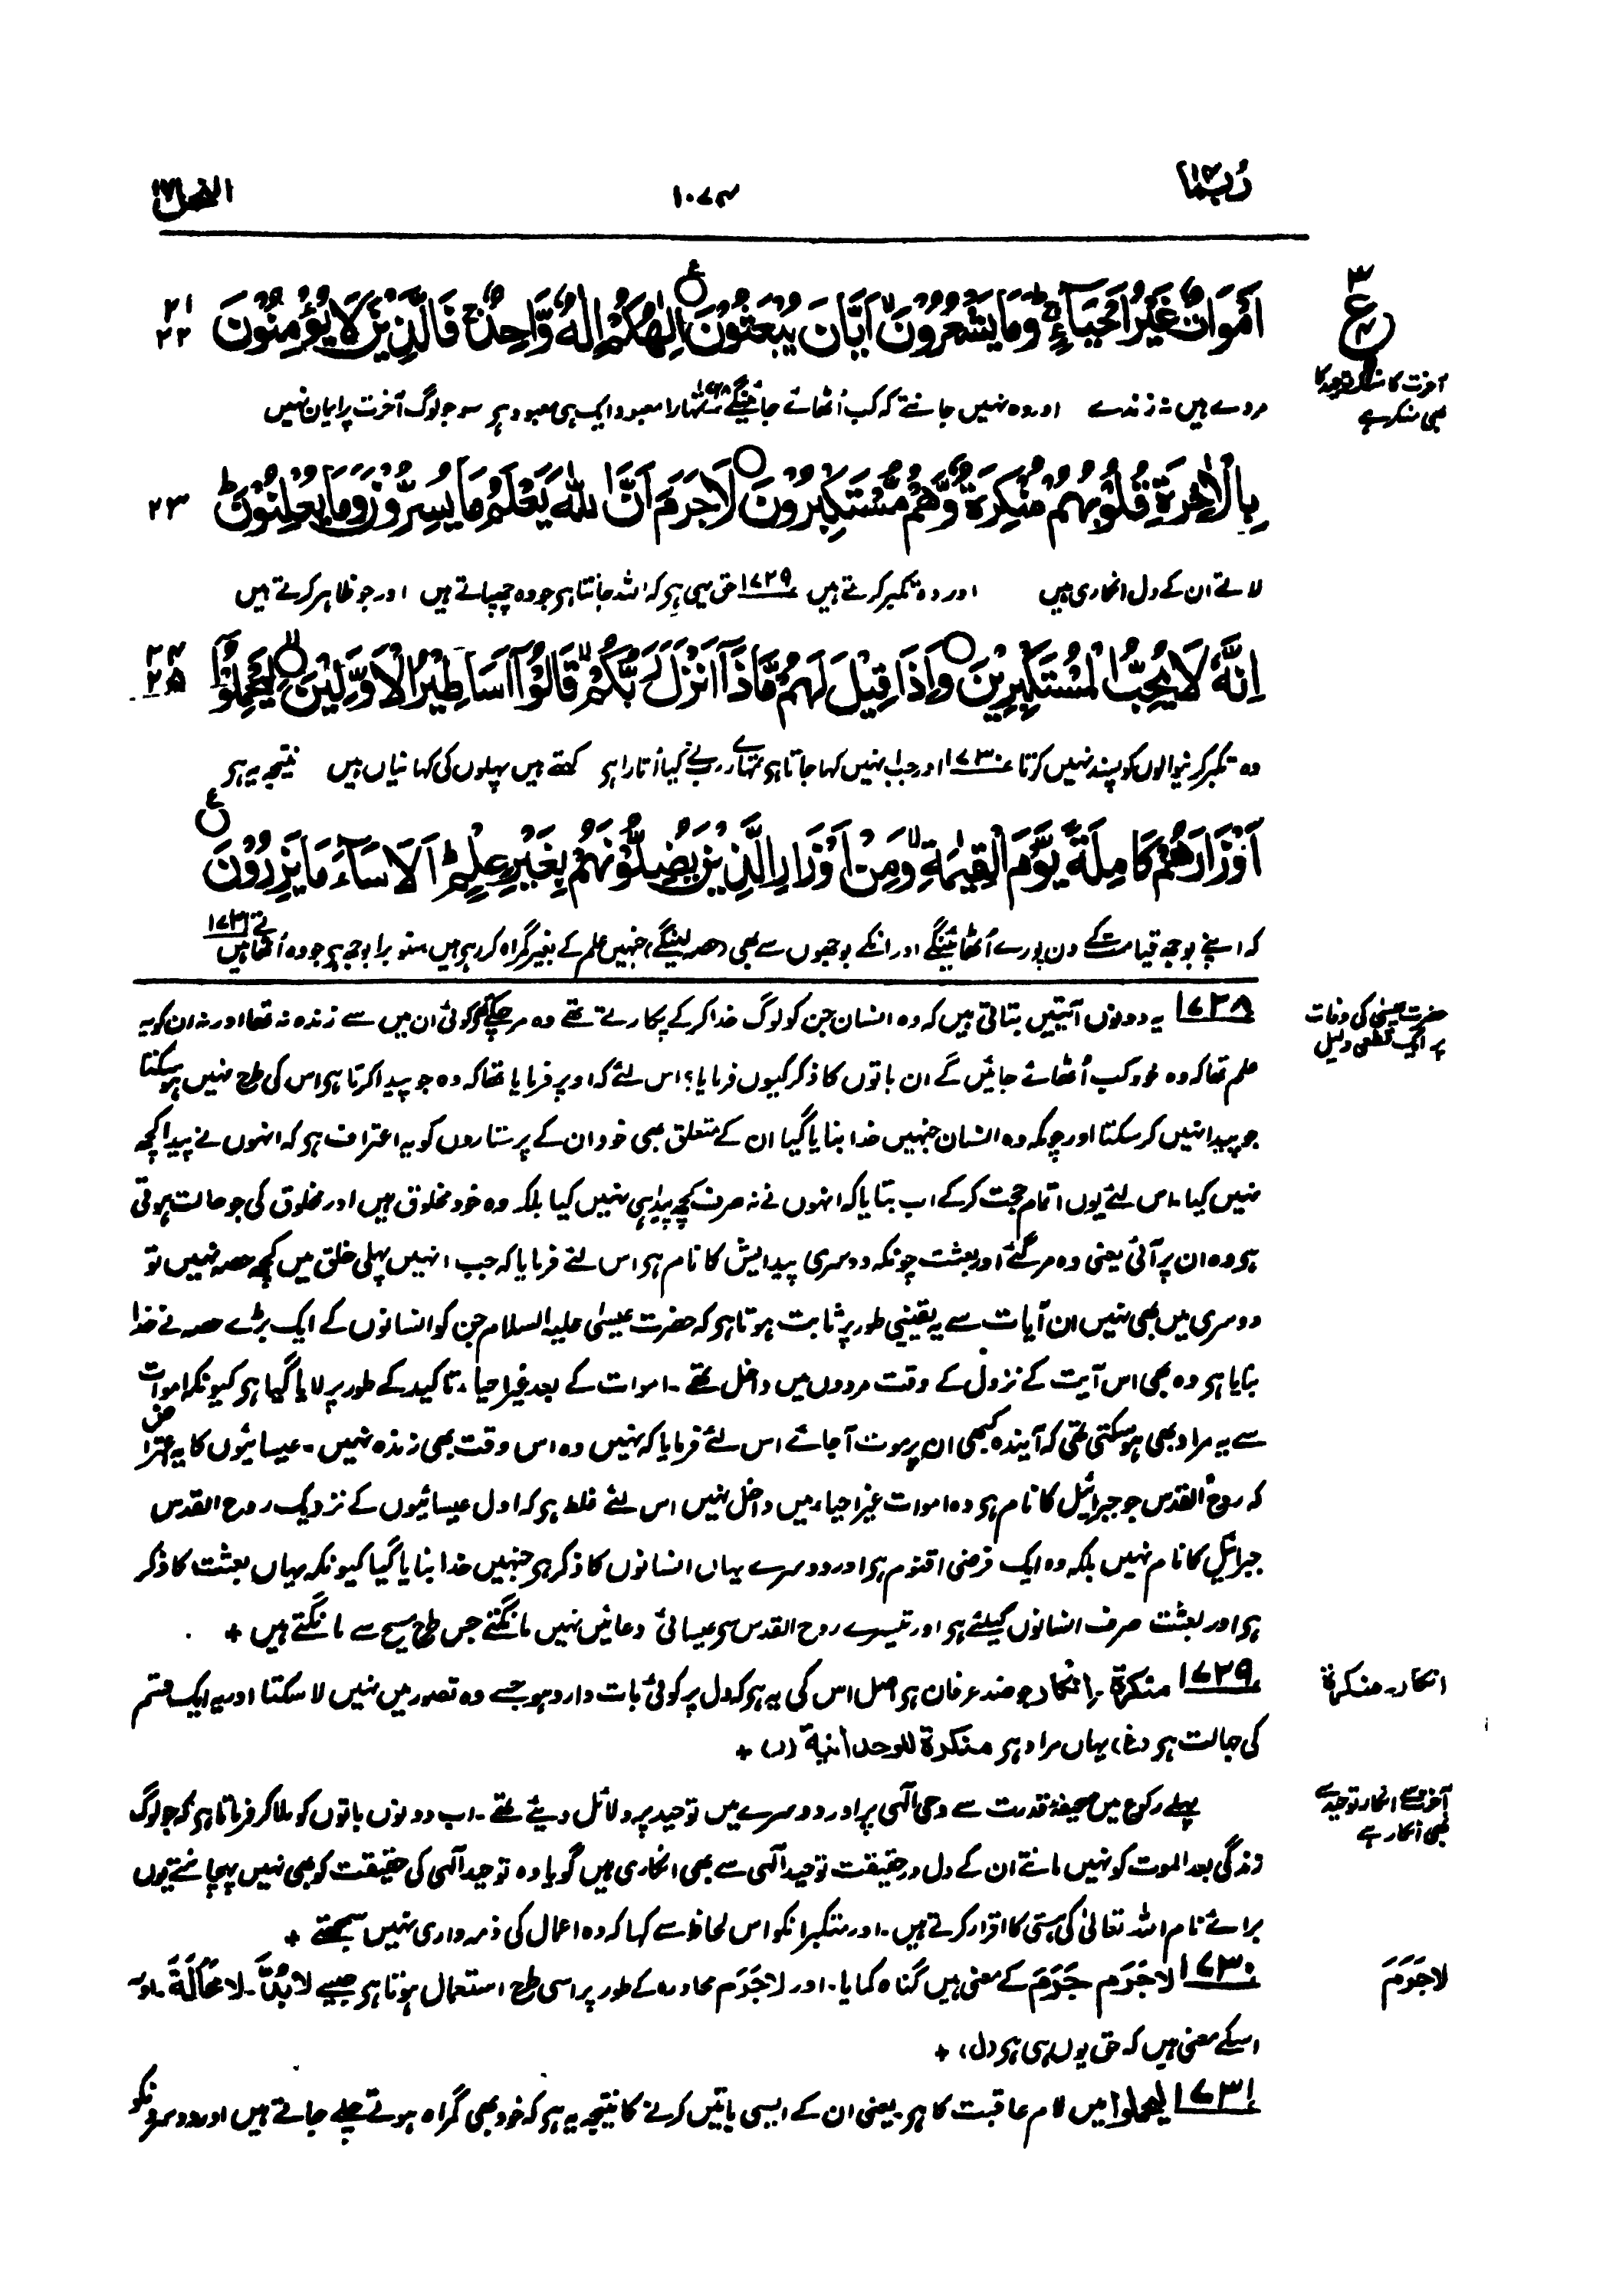 ربما ۱۴
۱۰۷۴
النحل ۱۶
۳
ع
اَمْوَاتٌ غَيْرُ اَحْيَآءٍ ۚ وَمَا يَشْعُرُوْنَ ۙ اَيَّانَ يُبْعَثُوْنَ ۝ اِلٰهُكُمْ اِلٰهٌ وَّاحِدٌ ۚ فَالَّذِيْنَ لَا يُؤْمِنُوْنَ
۲۱
۲۲
آخرت کا منکر توحید کا
بھی منکر ہے
مردے ہیں نہ زندے اور وہ نہیں جانتے کہ کب اُٹھائے جائینگے ۱۷۲۸ تمہارا معبود ایک ہی معبود ہی سو جو لوگ آخرت پر ایمان نہیں
بِالْاٰخِرَةِ قُلُوْبُهُمْ مُّنْكِرَةٌ وَّهُمْ مُّسْتَكْبِرُوْنَ ۝ لَا جَرَمَ اَنَّ اللّٰهَ يَعْلَمُ مَا يُسِرُّوْنَ وَمَا يُعْلِنُوْنَ ؕ
۲۳
لاتے ان کے دل انکاری ہیں اور وہ تکبر کرتے ہیں ۱۷۲۹ حق یہی ہی کہ اللہ جانتا ہی جو وہ چھپاتے ہیں اور جو ظاہر کرتے ہیں
اِنَّهٗ لَا يُحِبُّ الْمُسْتَكْبِرِيْنَ ۝ وَاِذَا قِيْلَ لَهُمْ مَّاذَآ اَنْزَلَ رَبُّكُمْ ۙ قَالُوْٓا اَسَاطِيْرُ الْاَوَّلِيْنَ ۝ لِيَحْمِلُوْٓا
۲۴
۲۵
وہ تکبر کرنیوالوں کو پسند نہیں کرتا ۱۷۳۰ اور جب انہیں کہا جاتا ہی تمہارے رب نے کیا اُتارا ہی کہتے ہیں پہلوں کی کہانیاں ہیں نتیجہ یہ ہی
اَوْزَارَهُمْ كَامِلَةً يَّوْمَ الْقِيٰمَةِ ۙ وَمِنْ اَوْزَارِ الَّذِيْنَ يُضِلُّوْنَهُمْ بِغَيْرِ عِلْمٍ ؕ اَلَا سَآءَ مَا يَزِرُوْنَ ۝
کہ اپنے بوجھ قیامت کے دن پورے اُٹھائینگے اور انکے بوجھوں سے بھی (حصہ لینگے) جنہیں علم کے بغیر گمراہ کر رہی ہیں سنو برا بوجھ ہی جو وہ اُٹھاتے ہیں ۱۷۳۱
حضرت عیسیٰ کی وفات
پر ایک قطعی دلیل
۱۷۲۸ یہ دونوں آیتیں بتاتی ہیں کہ وہ انسان جن کو لوگ خدا کر کے پکارتے تھے وہ مر چکے تھے کوئی ان میں سے زندہ نہ تھا اور نہ ان کو یہ
علم تھا کہ وہ خود کب اُٹھائے جائیں گے ان باتوں کا ذکر کیوں فرمایا؟ اس لئے کہ اوپر فرمایا تھا کہ وہ جو پیدا کرتا ہی اس کی طرح نہیں ہو سکتا
جو پیدا نہیں کر سکتا اور چونکہ وہ انسان جنہیں خدا بنایا گیا ان کے متعلق بھی خود ان کے پرستاروں کو یہ اعتراف ہی کہ انہوں نے پیدا کچھ
نہیں کیا۔ اس لئے یوں اتمام حجت کر کے اب بتایا کہ انہوں نے نہ صرف کچھ پیدا ہی نہیں کیا بلکہ وہ خود مخلوق ہیں اور مخلوق کی جو حالت ہوتی
ہی وہ ان پر آئی یعنی وہ مر گئے اور بعثت چونکہ دوسری پیدایش کا نام ہی اس لئے فرمایا کہ جب انہیں پہلی خلق میں کچھ حصہ نہیں تو
دوسری میں بھی نہیں ان آیات سے یہ یقینی طور پر ثابت ہوتا ہی کہ حضرت عیسیٰ علیہ السلام جن کو انسانوں کے ایک بڑے حصہ نے خدا
بنایا ہی وہ بھی اس آیت کے نزول کے وقت مردوں میں داخل تھے۔ اموات کے بعد غیر احیاء تاکید کے طور پر لایا گیا ہی کیونکہ اموات
سے یہ مراد بھی ہو سکتی تھی کہ آیندہ کبھی ان پر موت آجائے اس لئے فرمایا کہ نہیں وہ اس وقت بھی زندہ نہیں۔ عیسائیوں کا یہ اعتراض
کہ روح القدس جو جبرائیل کا نام ہی وہ اموات غیر احیاء میں داخل نہیں اس لئے غلط ہی کہ اول عیسائیوں کے نزدیک روح القدس
جبرائیل کا نام نہیں بلکہ وہ ایک فرضی اقنوم ہی اور دوسرے یہاں انسانوں کا ذکر ہی جنہیں خدا بنایا گیا کیونکہ یہاں بعثت کا ذکر
ہی اور بعثت صرف انسانوں کیلئے ہی اور تیسرے روح القدس سی عیسائی دعائیں نہیں مانگتے جس طرح مسیح سے مانگتے ہیں +
انکار۔ منکرۃ
۱۷۲۹ منکرۃ۔ انکار جو ضد عرفان ہی اصل اس کی یہ ہی کہ دل پر کوئی بات وارد ہو جسے وہ تصور میں نہیں لا سکتا اور یہ ایک قسم
کی جہالت ہی (غ) یہاں مراد ہی منکرۃ للوحدانیۃ (ر) +
آخرت سے انکار توحید سے
بھی انکار ہے
پہلے رکوع میں صحیفۂ قدرت سے وحی الٰہی پر اور دوسرے میں توحید پر دلائل دیئے تھے۔ اب دونوں باتوں کو ملا کر فرماتا ہی کہ جو لوگ
زندگی بعد الموت کو نہیں مانتے ان کے دل درحقیقت توحید الٰہی سے بھی انکاری ہیں گویا وہ توحید الٰہی کی حقیقت کو بھی نہیں پہچانتے یوں
برائے نام اللہ تعالیٰ کی ہستی کا اقرار کرتے ہیں۔ اور متکبر انکو اس لحاظ سے کہا کہ وہ اعمال کی ذمہ داری نہیں سمجھتے +
لاجَرَمَ
۱۷۳۰ لاجَرَم جَرَمَ کے معنی ہیں گناہ کمایا۔ اور لاجَرَم محاورہ کے طور پر اسی طرح استعمال ہوتا ہی جیسے لابُدَّ۔ لامَحَالَةَ۔ اور
اسکے معنی ہیں کہ حق یوں ہی ہی (ل) +
۱۷۳۱ لیحملوا میں لام عاقبت کا ہی یعنی ان کے ایسی باتیں کرنے کا نتیجہ یہ ہی کہ خود بھی گمراہ ہوتے چلے جاتے ہیں اور دوسرونکو